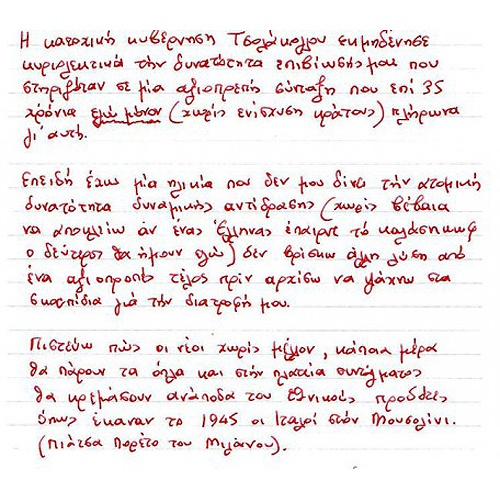 Η κατοχική κυβέρνηση Τσολάκογλου εκμηδένησε
κυριολεκτικά την δυνατότητα επιβίωσής μου που
στηριζόταν σε μία αξιοπρεπή σύνταξη που επί 35
χρόνια εγώ μόνον (χωρίς ενίσχυση κράτους) πλήρωνα
γι' αυτή.
Επειδή έχω μία ηλικία που δεν μου δίνει την ατομική
δυνατότητα δυναμικής αντίδρασης (χωρίς βέβαια
να αποκλείω αν ένας Έλληνας έπαιρνε το καλάσνικωφ
ο δεύτερος θα ήμουν εγώ) δεν βρίσκω άλλη λύση από
ένα αξιοπρεπές τέλος πρίν αρχίσω να ψάχνω στα
σκουπίδια γιά την διατροφή μου.
Πιστεύω πώς οι νέοι χωρίς μέλλον, κάποια μέρα
θα πάρουν τα όπλα και στην πλατεία συντάγματος
θα κρεμάσουν ανάποδα του Εθνικούς προδότες
όπως έκαναν το 1945 οι Ιταλοί στόν Μουσολίνι.
(Πιάτσα Πορέτο του Μιλάνου).